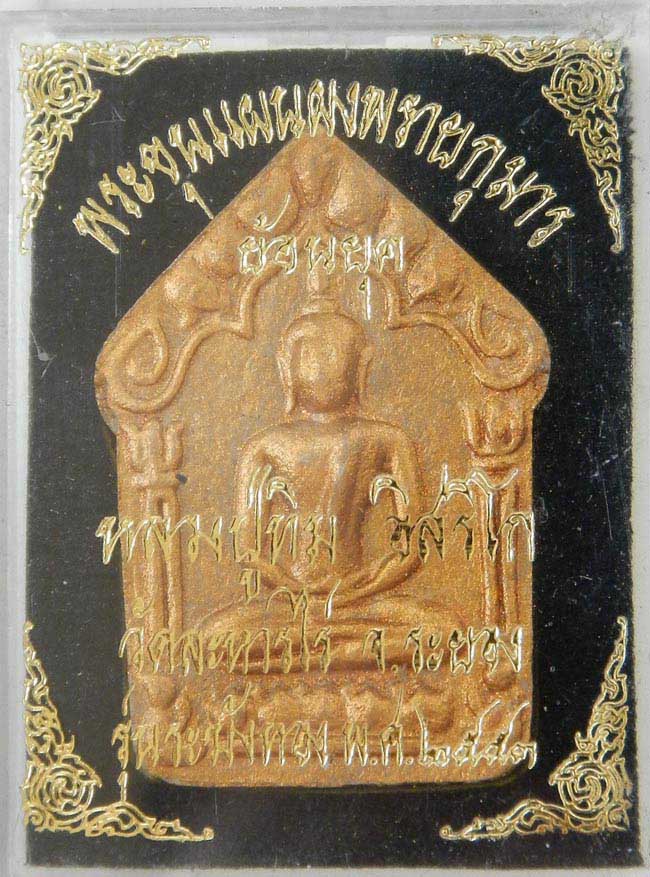 พระขุนแผนผงพรายกุมาร
ย้อนยุค
หลวงปู่ทิม อิสริโก
วัดละหารไร่ จ.ระยอง
รุ่นระฆังทอง พ.ศ.๒๕๕๓